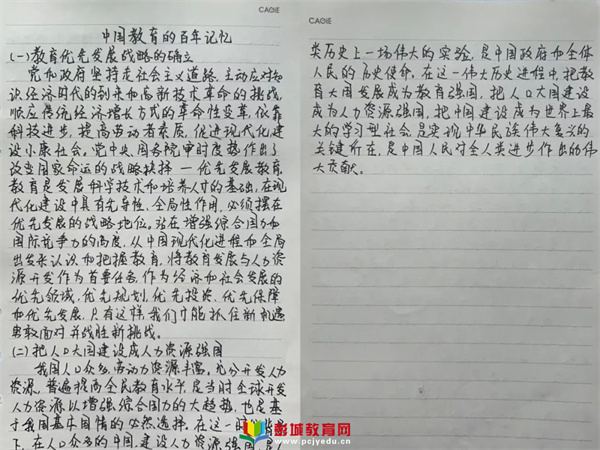 CAGIE
中国教育的百年记忆
(一)教育优先发展战略的确立
党和政府坚持走社会主义道路，主动应对知
识经济时代的到来和高新技术革命的挑战，
顺应传统经济增长方式的革命性变革，依靠
科技进步，提高劳动者素质，促进现代化建
设小康社会。党中央、国务院审时度势作出了
改变国家命运的战略抉择—优先发展教育。
教育是发展科学技术和培养人才的基础，在现
代化建设中具有先导性、全局性作用，必须摆在
优先发展的战略地位。站在增强综合国力和
国际竞争力的高度，从中国现代化进程和全局
出发来认识和把握教育，将教育发展与人力资
源开发作为首要任务，作为经济和社会发展的
优先领域，优先规划，优先投资，优先保障
和优先发展，只有这样，我们才能抓住新机遇
勇敢面对并战胜新挑战。
(二)把人口大国建设成人力资源强国
我国人口众多，劳动力资源丰富，充分开发人力
资源，普遍提高全民教育水平是当时全球开发
人力资源以增强综合国力的大趋势，也是基
于我国基本国情的必然选择。在这一
下，在人口众多的中国，建设人力资源强国，是
CAGIE
类历史上一场伟大的实验，是中国政府和全体
人民的历史使命。在这一伟大历史进程中，把教
育大国发展成为教育强国，把人口大国建设
成为人力资源强国，把中国建设成为世界上最
大的学习型社会，是实现中华民族伟大复兴的
关键所在，是中国人民对全人类进步作出的伟
大贡献。
彭城教育网
www.pcjyedu.cn